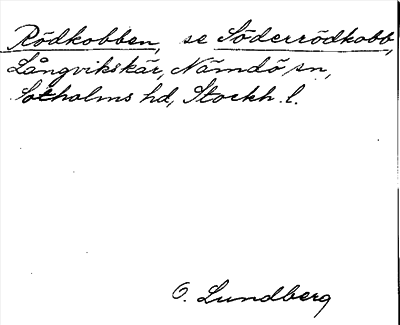 Rödkobben, se Söderrödkobb,
Långvikskär, Nämdö sn,
Sotholms hd, Stockh. l.
O. Lundberg